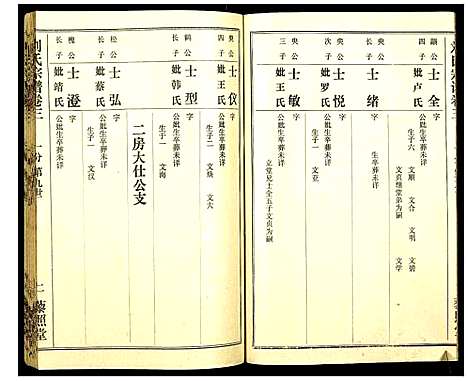 顯公
四子
士全 字
妣卢氏
公妣生卒葬未详
生子六 文顺 文合 文明 文碧
文贞继堂弟为嗣 文学
奂公
长子
士绪 字
公妣生卒葬未详
奂公
次子
士悦 字
妣罗氏
公妣生卒葬未详
生子一 文亚
奂公
三子
士敏 字
妣王氏
公妣生卒葬未详
立堂兄士全五子文贞为嗣
奂公
四子
士仪 字
妣王氏
公妣生卒葬未详
生子二 文焕 文大
鹤公
长子
士型 字
妣韩氏
公妣生卒葬未详
生子一 文海
二房大仕公支
松公
长子
士弘 字
妣蔡氏
公妣生卒葬未详
生子一 文汉
槐公
长子
士澄 字
妣靖氏
公妣生卒葬未详
刘氏宗谱卷三
一分 第九世
十一
藜照堂